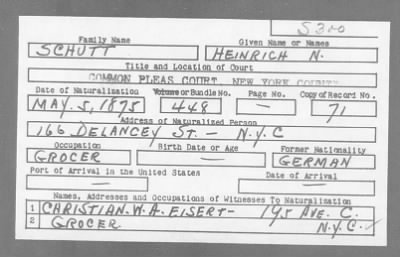 S300
Family Name Given Name or Names
SCHUTT HEINRICH N.
Title and Location of Court
COMMON PLEAS COURT, NEW YORK COUNTY
Date of Naturalization Volume or Bundle No. Page No. Copy of Record No.
MAY. 5, 1875 448 — 71
Address of Naturalized Person
166 DELANCEY ST. - N.Y.C
Occupation Birth Date or Age Former Nationality
GROCER — GERMAN
Port of Arrival in the United States Date of Arrival
— —
Names, Addresses and Occupations of Witnesses To Naturalization
1 CHRISTIAN. W. A. EISERT - 195 AVE. C.
2 GROCER. N.Y.C.